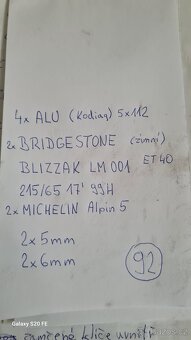 4x ALU (Kodiaq) 5x112
2x BRIDGESTONE (zimní)
BLIZZAK LM001 ET40
215/65 17' 99H
2x MICHELIN Alpin 5
2x5mm
2x6mm
92
klíče uvnitř
Galaxy S20 FE